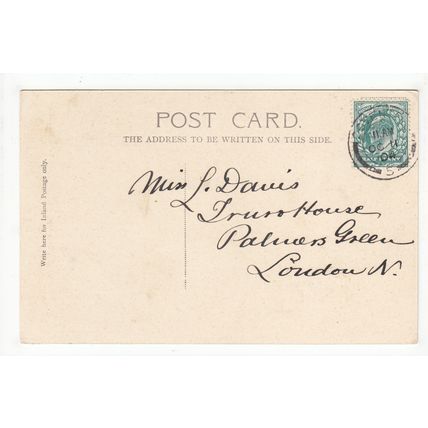 POST CARD.
THE ADDRESS TO BE WRITTEN ON THIS SIDE.
Write here for Inland Postage only.
Miss J. Davis
Truro House
Palmers Green
London N.
11 AM
OC 11
04
S